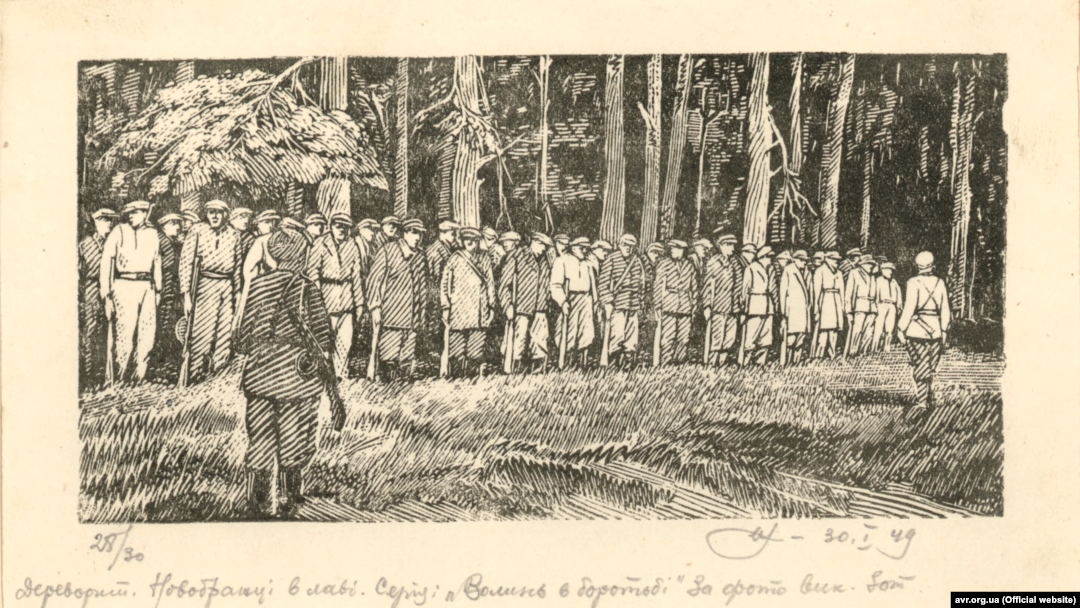 28/30
- 30. I 49
Дереворит. Новобранці в лаві. Серія: „Волинь в боротьбі" За фото вик.
avr.org.ua (Official website)